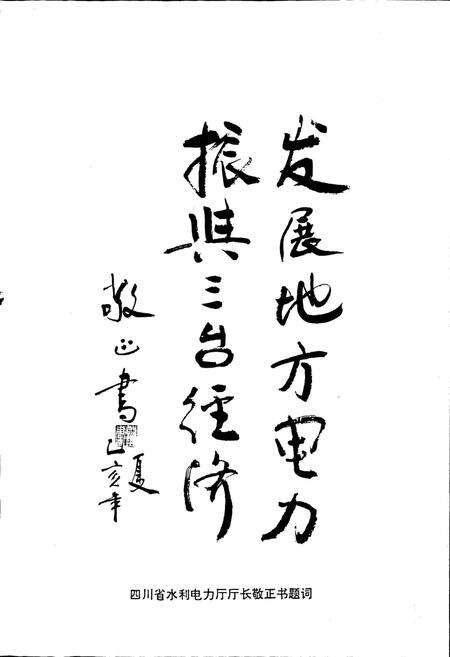 发展地方电力
振興三台经济
敬正書
乙亥年夏
四川省水利电力厅厅长敬正书题词